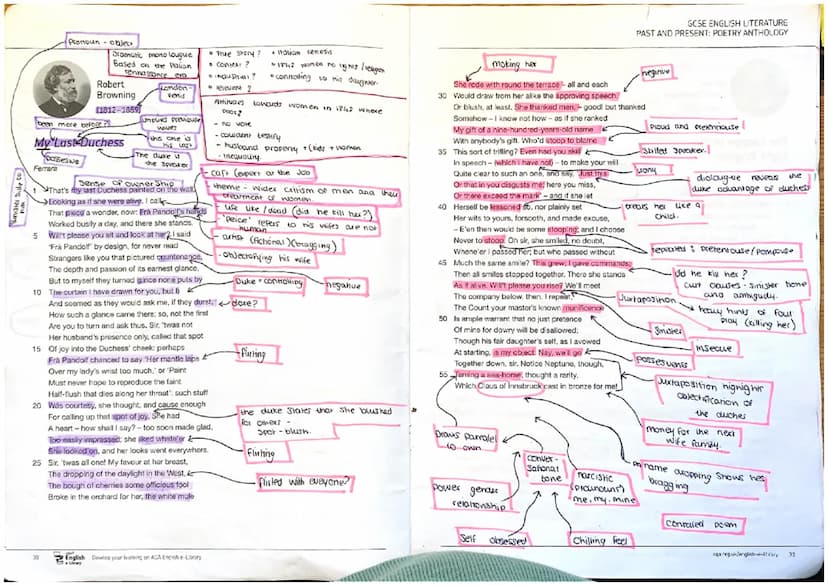 GCSE ENGLISH LITERATURE
PAST AND PRESENT: POETRY ANTHOLOGY
Pronoun - object
Dramatic monologue
Based on the Italian
rennaissance era
• True story?
• Context?
• Industrial?
• relevent?
• Italian
• 1842 women no rights/religon
• controlling so his daughter
Robert
Browning
(1812–1889)
London-
Attitudes towards women in 1842 where
poor?
- no vote
- couldnt testify
- husband property + (kids + women
- inequality.
been more before?
implied previous
wives
this one is
his last
My Last Duchess
possesive
The duke is
the speaker
Ferrara
Sense of ownership
- CAPS (export at the Job
- theme - wider critism of men and their
treatment of women.
- life like / dead (did he kill her?)
- 'Peice' refers to his wife are not
human
- artist (fictional)(bragging)
- objectifying his wife
1 That's my last Duchess painted on the wall,
Looking as if she were alive. I call
That piece a wonder, now: Frà Pandolf's hands
Worked busily a day, and there she stands.
5 Will't please you sit and look at her? I said
'Frà Pandolf' by design, for never read
Strangers like you that pictured countenance,
The depth and passion of its earnest glance,
But to myself they turned (since none puts by
10 The curtain I have drawn for you, but I)
And seemed as they would ask me, if they durst,
How such a glance came there; so, not the first
Are you to turn and ask thus. Sir, 'twas not
Her husband's presence only, called that spot
15 Of joy into the Duchess' cheek: perhaps
Frà Pandolf chanced to say 'Her mantle laps
Over my lady's wrist too much,' or 'Paint
Must never hope to reproduce the faint
Half-flush that dies along her throat': such stuff
20 Was courtesy, she thought, and cause enough
For calling up that spot of joy. She had
A heart – how shall I say? – too soon made glad,
Too easily impressed; she liked whate'er
She looked on, and her looks went everywhere.
25 Sir, 'twas all one! My favour at her breast,
The dropping of the daylight in the West,
The bough of cherries some officious fool
Broke in the orchard for her, the white mule
Duke + controlling
negative
dare?
flirting
the duke states that she blushed
for others -
spot - blush.
Flirting
flirted with everyone?
30
English
e-Library
Develop your learning on AQA English e-Library
making her
negative
She rode with round the terrace – all and each
30 Would draw from her alike the approving speech,
Or blush, at least. She thanked men, – good! but thanked
Somehow – I know not how – as if she ranked
My gift of a nine-hundred-years-old name
With anybody's gift. Who'd stoop to blame
35 This sort of trifling? Even had you skill
In speech – (which I have not) – to make your will
Quite clear to such an one, and say, 'Just this
Or that in you disgusts me; here you miss,
Or there exceed the mark' – and if she let
40 Herself be lessoned so, nor plainly set
Her wits to yours, forsooth, and made excuse,
– E'en then would be some stooping; and I choose
Never to stoop. Oh sir, she smiled, no doubt,
Whene'er I passed her; but who passed without
45 Much the same smile? This grew; I gave commands;
Then all smiles stopped together. There she stands
As if alive. Will't please you rise? We'll meet
The company below, then. I repeat,
The Count your master's known munificence
50 Is ample warrant that no just pretence
Of mine for dowry will be disallowed;
Though his fair daughter's self, as I avowed
At starting, is my object. Nay, we'll go
Together down, sir. Notice Neptune, though,
55 Taming a sea-horse, thought a rarity,
Which Claus of Innsbruck cast in bronze for me!
Proud and pretenhouse
Skilled Speaker.
Irony
dialougue reveals the
duke advantage of duchess
treats her like a
child.
repeated = pretenhouse/pompouse
did he kill her?
curt clauses - sinister tone
and ambiguity.
Juxtaposition
heavy hints of foul
play (killing her)
Sinister
insecure
possesives
Juxtaposition highligher
objectification of
the duches
money for the next
wife family.
name dropping shows hes
bragging
controlled poem
Draws parralel
to own
conver-
sational
tone
narcistic
(pronouns)
me, my, mine
power gender
relationship
Self obsessed
Chilling feel
aqa.org.uk/english-e-library
31